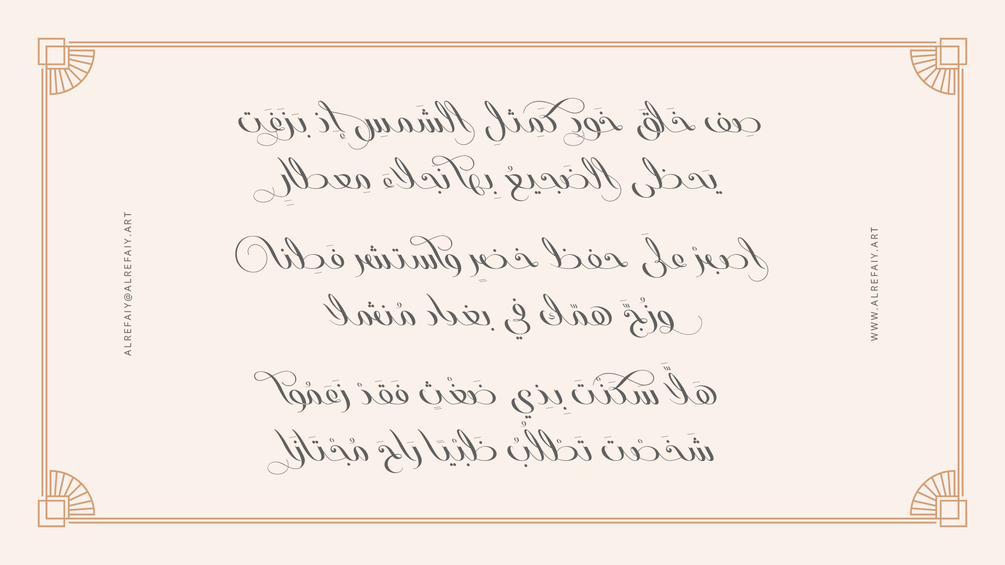 صِف خَلقَ خَودِ كَمِثلِ الشَمسِ إِذ بَزَغَت
يَحظى الضَجيعُ بِها نَجلاءَ مِعطارِ
اصبر على حفظ خضر واستشر فطنا
وزج همك في بغداد منثملا
هَلّا سكنْتَ بذي ضغثٍ فقَدْ زعَمُوا
شخَصْتَ تطلُبُ ظبْيًا راحَ مُجتازا
ALREFAIY@ALREFAIY.ART
WWW.ALREFAIY.ART